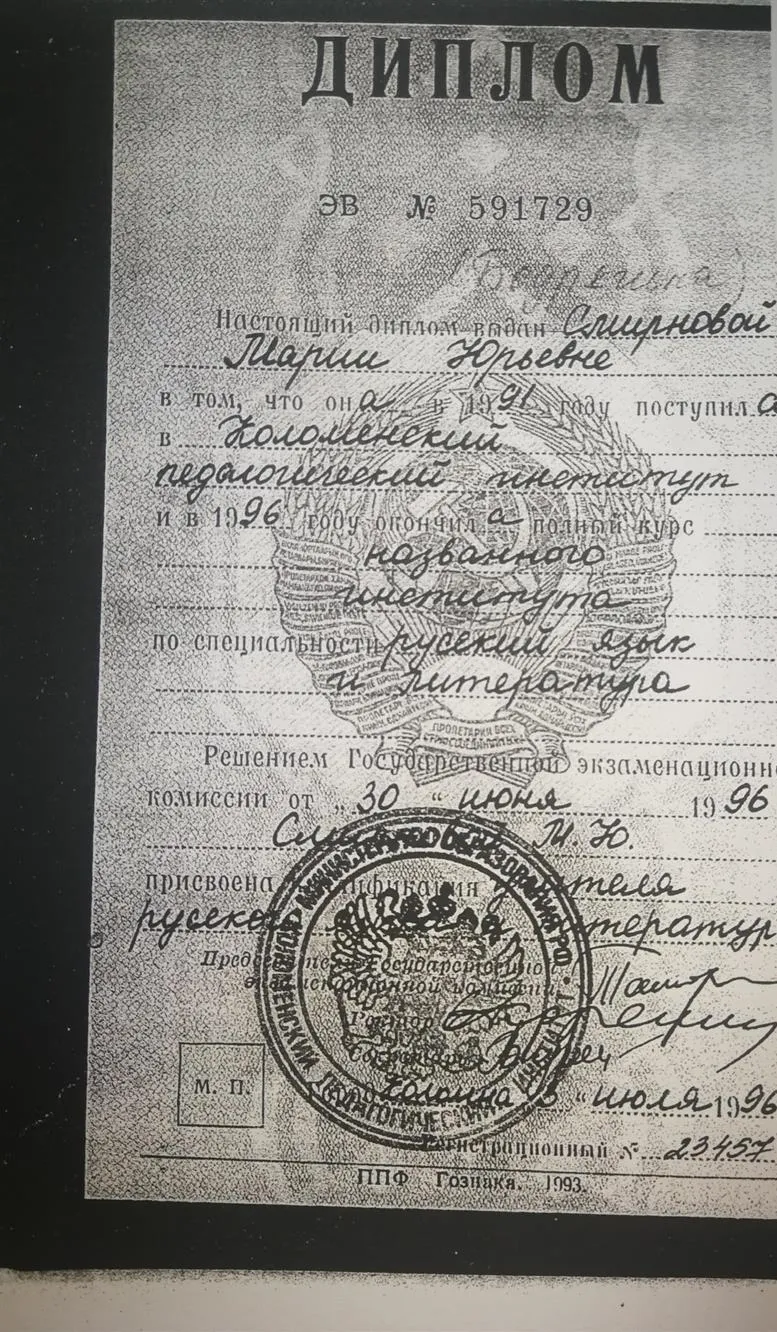 ДИПЛОМ
ЭВ № 591729
Настоящий диплом выдан Смирновой
Марии Юрьевне
в том, что она в 1991 году поступила
в Коломенский
педагогический институт
и в 1996 году окончила полный курс
названного
института
по специальности русский язык
и литература
ПРОЛЕТАРИИ ВСЕХ
Решением Государственной экзаменационно
комиссии от „30“ июня 1996
М.Ю.
присвоена учителя
МИНИСТЕРСТВО ОБРАЗОВАНИЯ РФ
КОЛОМЕНСКИЙ ПЕДАГОГИЧЕСКИЙ ИНСТИТУТ
Государственной
экзаменационной комиссии
Ректор
Секретарь
М. П.
Город Коломна 3 “ июля 1996
Регистрационный № 23457
ППФ Гознака. 1993.